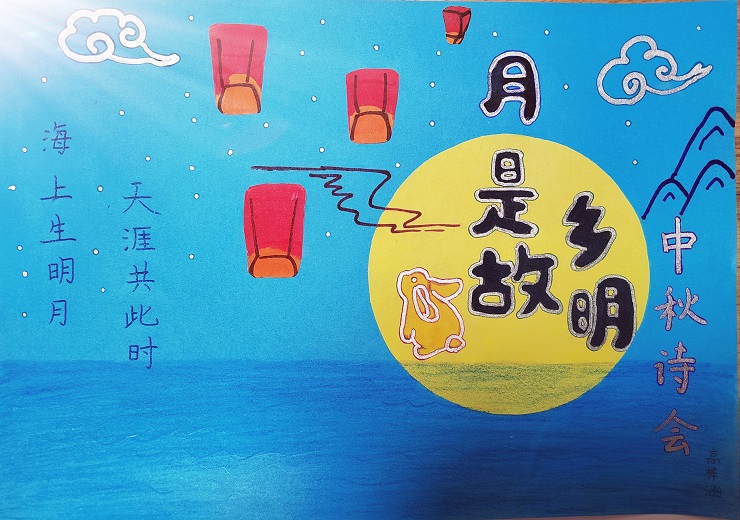 海上生明月
天涯共此时
月是故乡明
中秋诗会